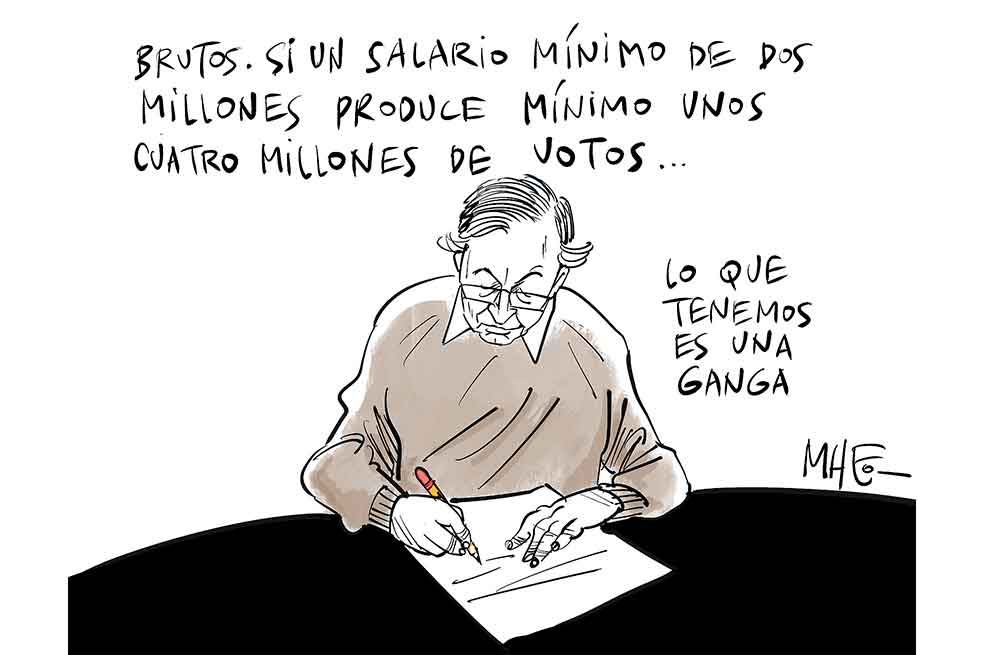 BRUTOS. SI UN SALARIO MÍNIMO DE DOS
MILLONES PRODUCE MÍNIMO UNOS
CUATRO MILLONES DE VOTOS...
LO QUE
TENEMOS
ES UNA
GANGA
MHEO